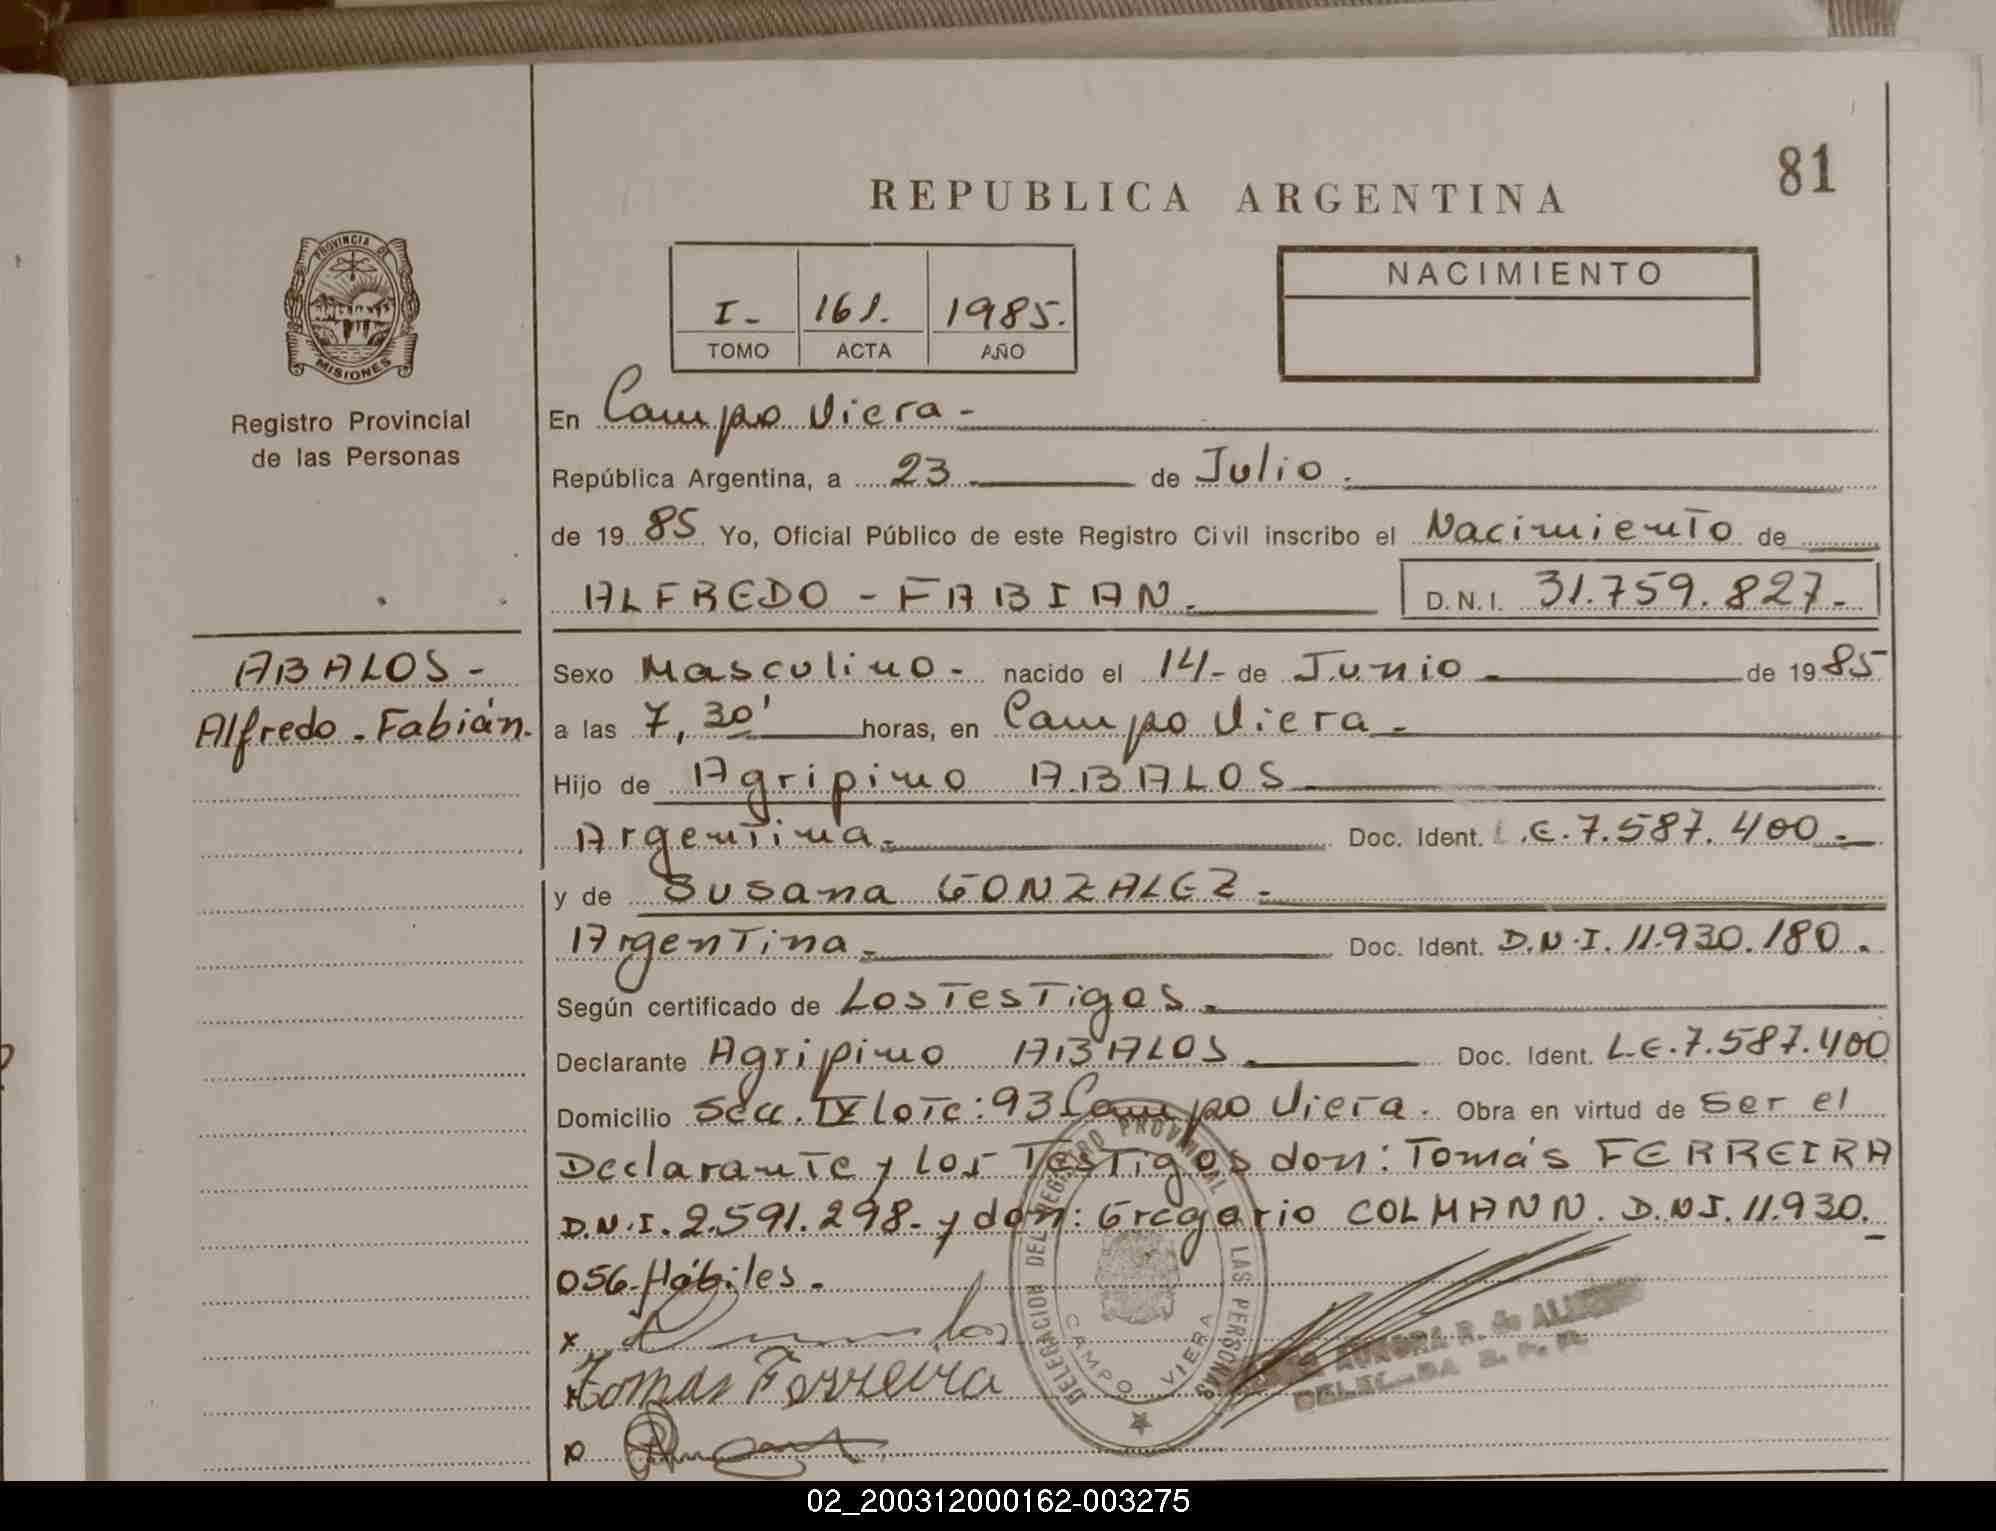 81
REPUBLICA ARGENTINA
PROVINCIA DE
MISIONES
Registro Provincial
de las Personas
I- 161. 1985.
TOMO ACTA AÑO
NACIMIENTO
En Campo Viera-
República Argentina, a 23 de Julio.
de 1985 Yo, Oficial Público de este Registro Civil inscribo el Nacimiento de
ALFREDO - FABIAN. D.N.I. 31.759.827-
ABALOS-
Alfredo-Fabián.
Sexo Masculino- nacido el 14- de Junio de 1985
a las 7,30' horas, en Campo Viera-
Hijo de Agripino ABALOS
Argentina. Doc. Ident. L.E.7.587.400-
y de Susana GONZALEZ-
Argentina. Doc. Ident. D.N.I. 11.930.180.
Según certificado de Los Testigos.
Declarante Agripino ABALOS. Doc. Ident. L.E.7.587.400
Domicilio Secc. IX Lote: 93 Campo Viera. Obra en virtud de Ser el
Declarante y los Testigos don: Tomás FERREIRA
D.N.I. 2.591.298- y don: Gregorio COLMANN. D.N.I. 11.930.
056-Hábiles.
x
x Tomas Ferreira
DELEGACION DEL REGISTRO PROVINCIAL DE LAS PERSONAS
CAMPO VIERA
AURORA R. de
DELEGADA R. P. P.
02_200312000162-003275